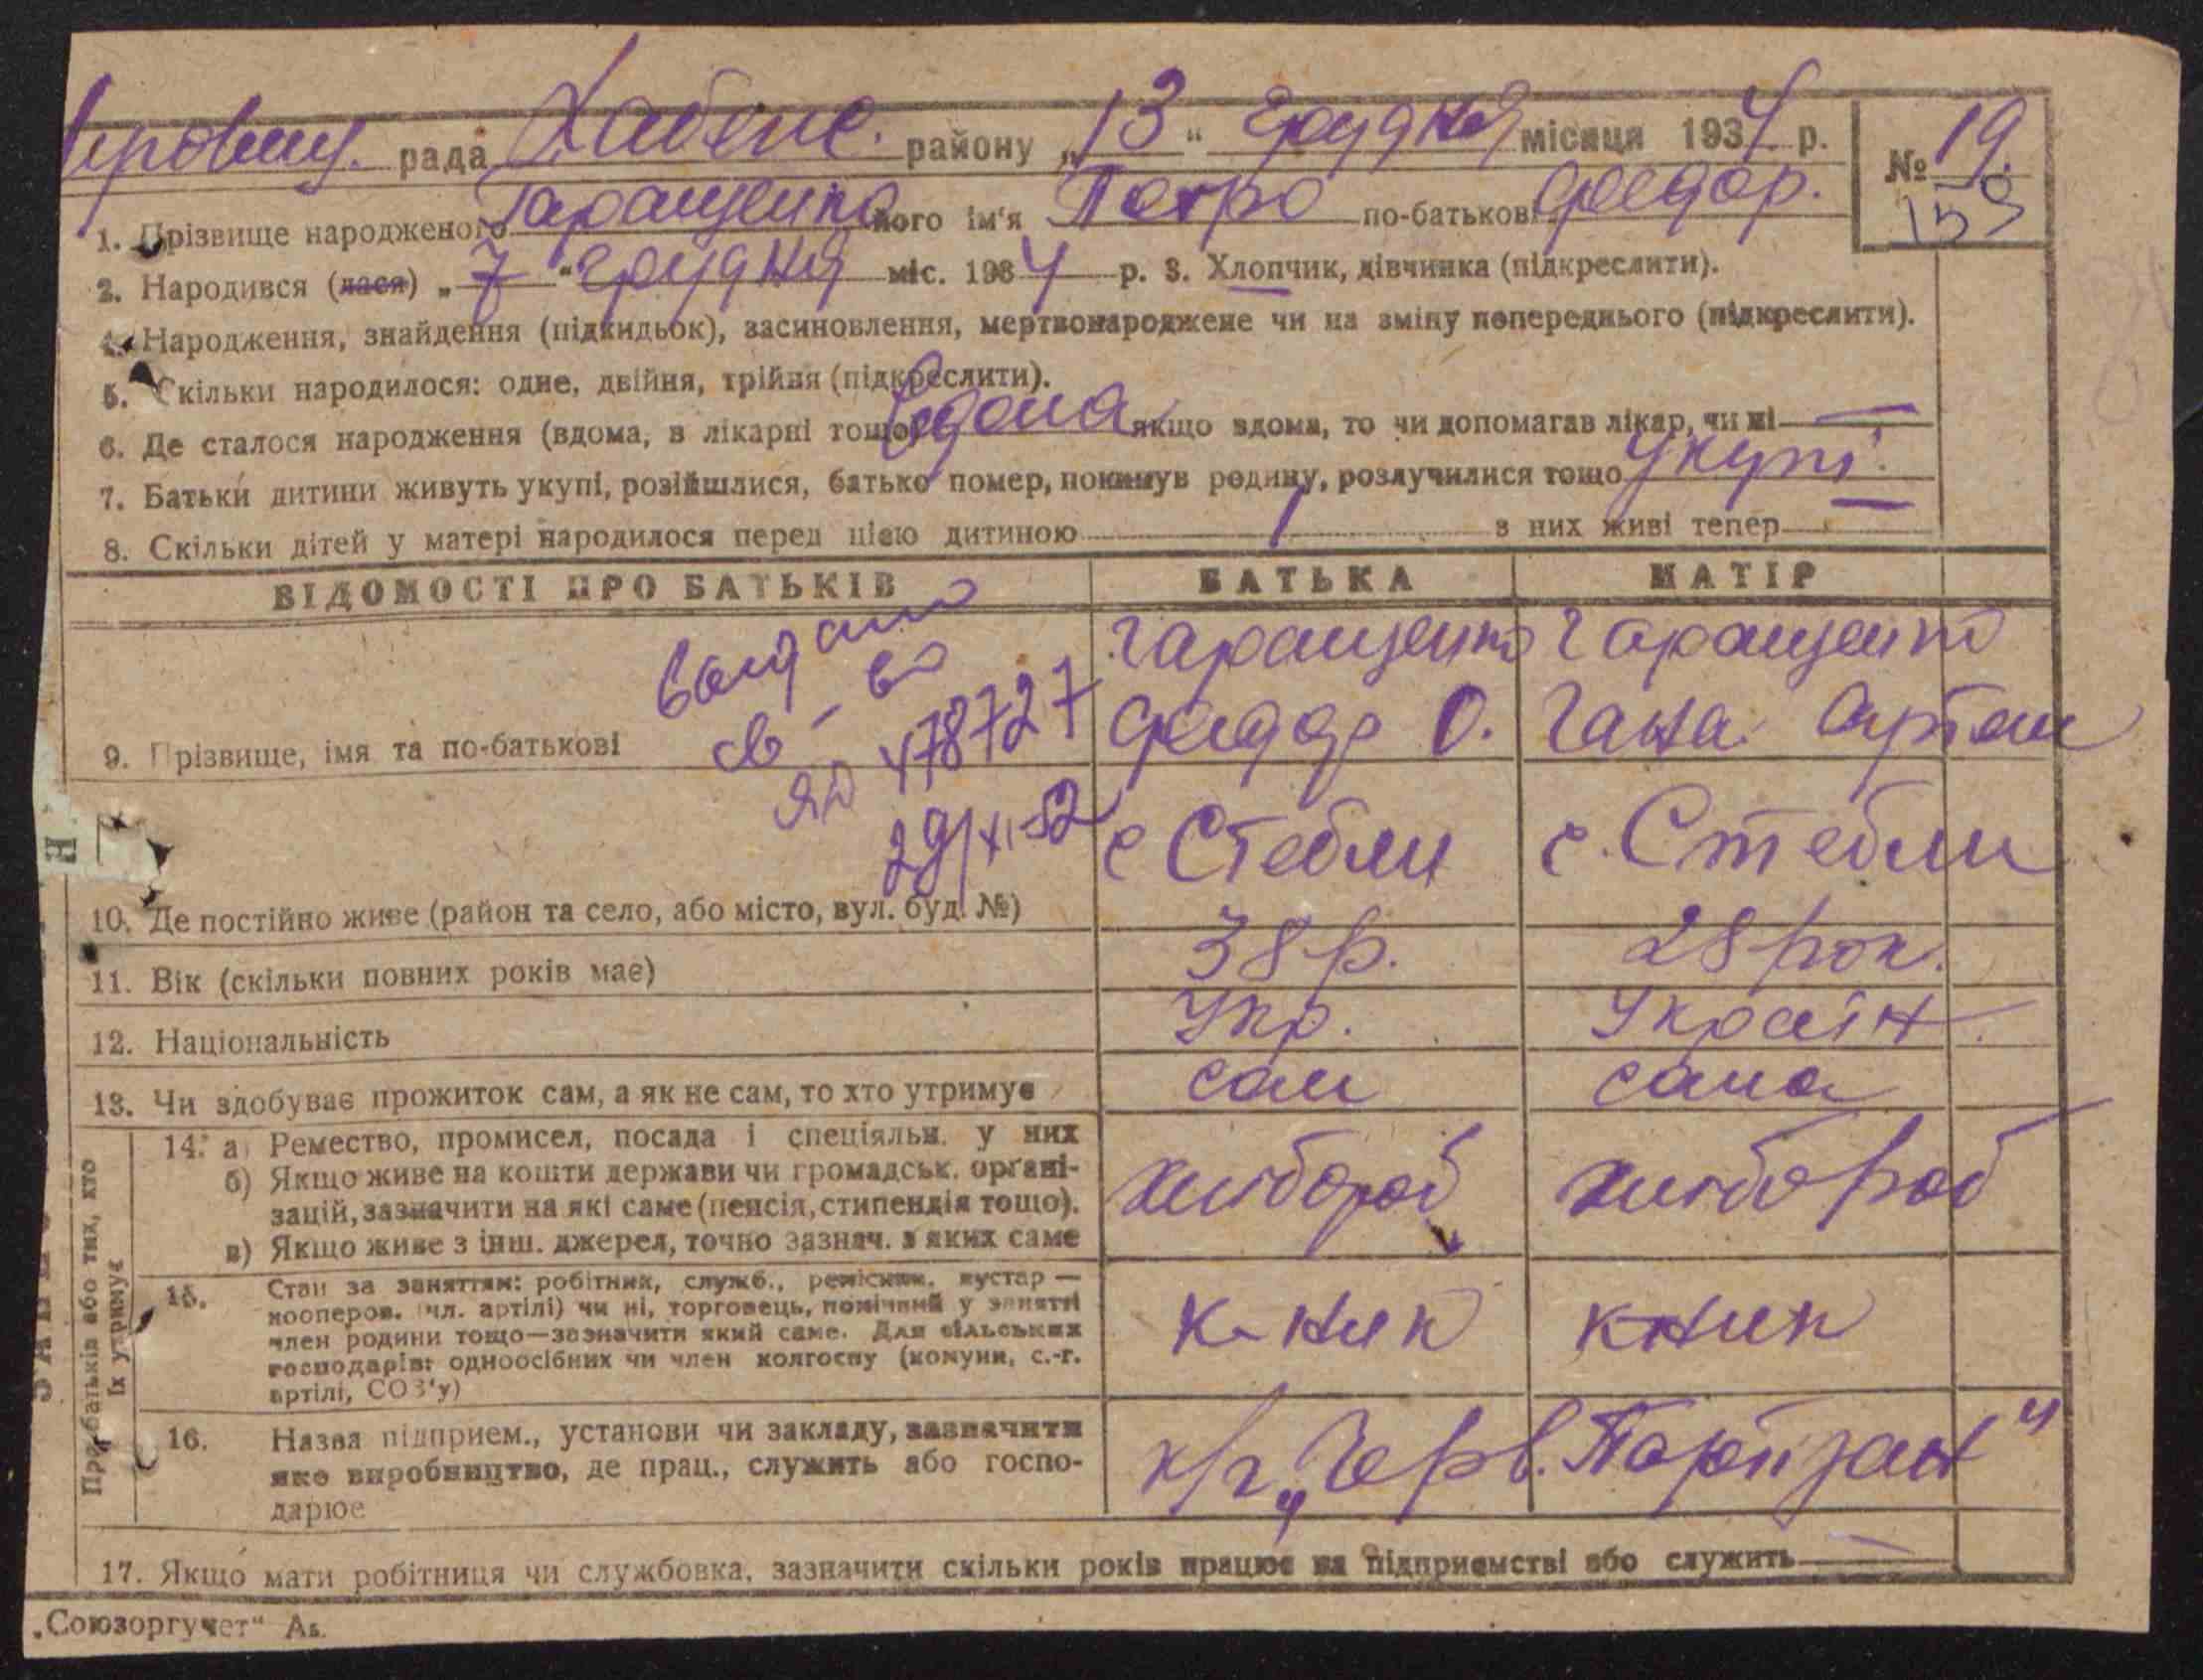 рада Хабенс. району „13“ грудня місяця 1934 р.
№ 19.
159
1. Прізвище народженого Гаращенко його ім'я Петро по-батькові Федор.
2. Народився (лася) „7“ грудня міс. 1934 р. 3. Хлопчик, дівчинка (підкреслити).
4. Народження, знайдення (підкидьок), засиновлення, мертвонароджене чи на зміну попереднього (підкреслити).
5. Скільки народилося: одне, двійня, трійня (підкреслити).
6. Де сталося народження (вдома, в лікарні тощо) вдома якщо вдома, то чи допомагав лікар, чи ні —
7. Батьки дитини живуть укупі, розійшлися, батько помер, покинув родину, розлучилися тощо укупі.
8. Скільки дітей у матері народилося перед цією дитиною 1 з них живі тепер
ВІДОМОСТІ ПРО БАТЬКІВ БАТЬКА МАТІР
9. Прізвище, імя та по-батькові Гаращенко Федор О. Гаращенко Гана Артем
св-во
ЯО 478727
29/XI-52
10. Де постійно живе (район та село, або місто, вул. буд. №) с Стебли с. Стебли
11. Вік (скільки повних років має) 38 р. 28 рок.
12. Національність Укр. Україн.
13. Чи здобуває прожиток сам, а як не сам, то хто утримує сам сама
Про батьків або тих, хто їх утримує
14. а) Ремество, промисел, посада і спеціяльн. у них
б) Якщо живе на кошти держави чи громадськ. органі-
зацій, зазначити на які саме (пенсія, стипендія тощо).
в) Якщо живе з інш. джерел, точно зазнач. з яких саме
хлібороб хлібороб
15. Стан за заняттям: робітник, служб., ремісник, кустар —
кооперов. (чл. артілі) чи ні, торговець, помічний у занятті
член родини тощо—зазначити який саме. Для сільських
господарів: одноосібних чи член колгоспу (комуни, с.-г.
артілі, СОЗ'у)
к-ник кник
16. Назва підприєм., установи чи закладу, зазначити
яке виробництво, де прац., служить або госпо-
дарює
к/г „Черв. Партизан“
17. Якщо мати робітниця чи службовка, зазначити скільки років працює на підприємстві або служить —
„Союзоргучет“